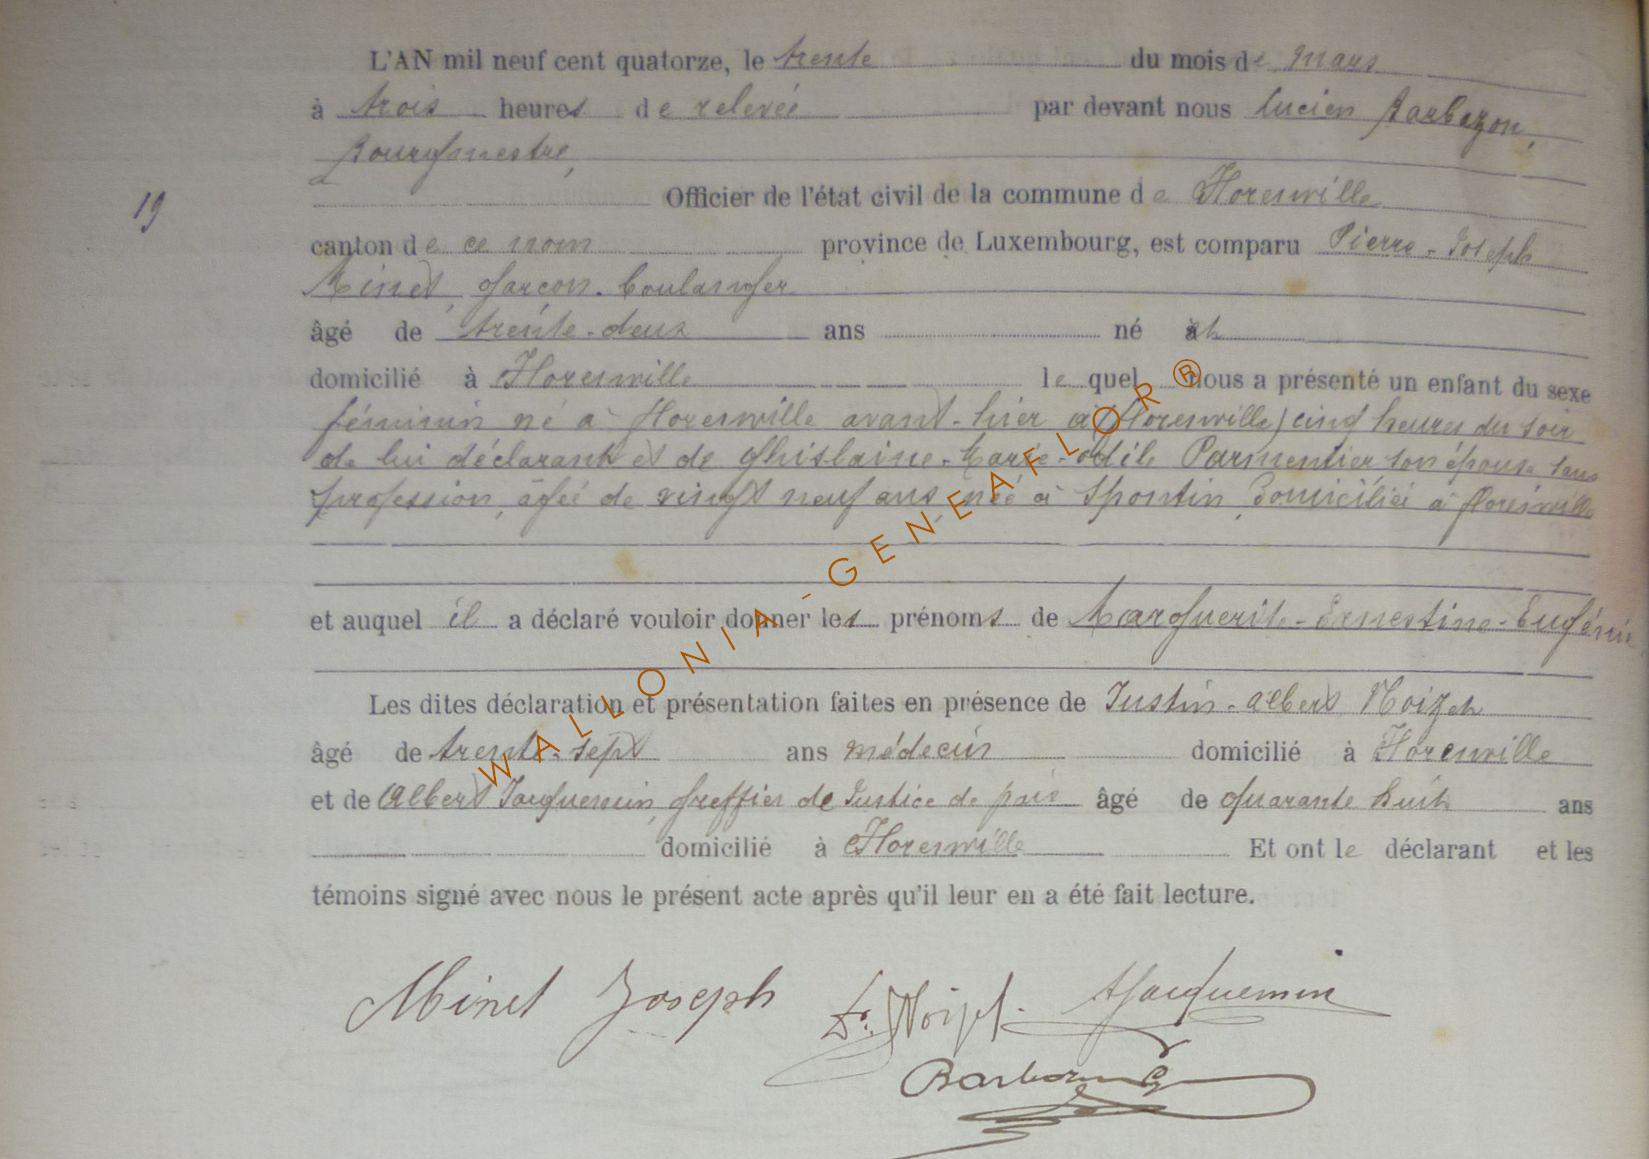 L'AN mil neuf cent quatorze, le trente du mois de mars
à trois heures de relevée par devant nous Lucien Barbazon,
Bourgmestre,
19
Officier de l'état civil de la commune de Florenville
canton de ce nom province de Luxembourg, est comparu Pierre-Joseph
Minet, garçon-boulanger
âgé de trente-deux ans né
domicilié à Florenville lequel nous a présenté un enfant du sexe
féminin né à Florenville avant-hier à (Florenville) cinq heures du soir
de lui déclarant et de Ghislaine-Marie-Odile Parmentier son épouse sans
profession, âgée de vingt neuf ans, née à Spontin, domiciliée à Florenville
et auquel il a déclaré vouloir donner les prénoms de Marguerite-Ernestine-Eugénie
Les dites déclaration et présentation faites en présence de Justin-Albert Noizet
âgé de trente-sept ans médecin domicilié à Florenville
et de Albert Jacquemin, greffier de Justice de paix âgé de quarante huit ans
domicilié à Florenville Et ont le déclarant et les
témoins signé avec nous le présent acte après qu'il leur en a été fait lecture.
Minet Joseph Dr. Noizet. AJacquemin
Barbazon
WALLONIA-GENEAFLOR®